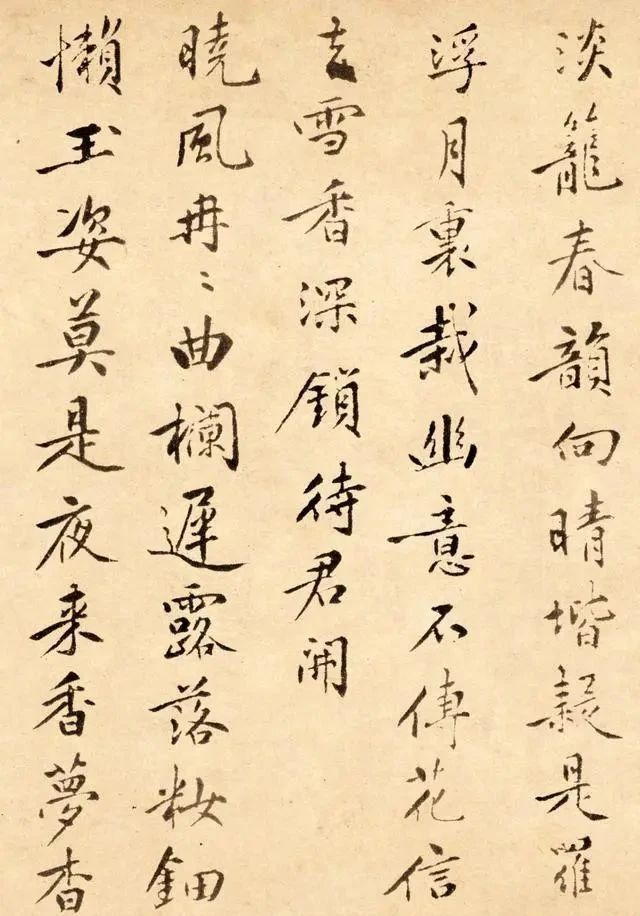 淡籠春韻向晴堦疑是羅
浮月裏栽幽意不傳花信
去雪香深鎖待君開
曉風冉〻曲欄遲露落籹鈿
懶玉姿莫是夜來香夢杳